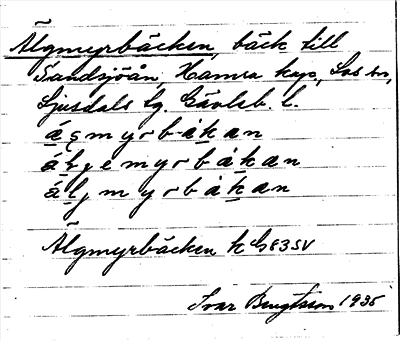 Älgmyrbäcken, bäck till
Sandsjöån, Hamra kap., Los sn,
Ljusdals tg. Gävleb. l.
myrbäkan
myrbäkan
myrbäkan
Älgmyrbäcken k
Ivar Bengtsson 1935